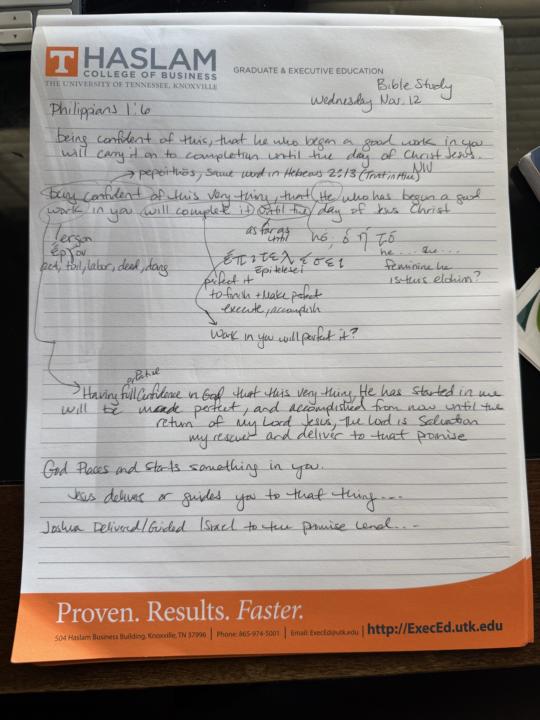 T HASLAM
COLLEGE OF BUSINESS
THE UNIVERSITY OF TENNESSEE, KNOXVILLE
GRADUATE & EXECUTIVE EDUCATION
Bible Study
Wednesday Nov. 12
Philippians 1:6
being confident of this, that he who began a good work in you
will carry it on to completion until the day of Christ Jesus.
NIV
pepoithōs, same word in Hebrews 2:13 (Trust in Him)
Being confident of this very thing, that He who has begun a good
work in you will complete it until the day of Jesus Christ
as far as
until
ho, ὁ ἡ τό
he... the...
feminine he
is this elohim?
ergon
ἔργον
toil, labor, deed, doing
ἐπιτελέσει
epitelesei
perfect it
to finish + make perfect
execute, accomplish
Work in you will perfect it?
Having full Confidence in God that this very thing, He has started in me
will be made perfect, and accomplished from now until the
return of my Lord Jesus, the Lord is Salvation
my rescuer and deliver to that promise
God Places and starts something in you.
Jesus delivers or guides you to that thing...
Joshua Delivered/Guided Israel to the promise land...
Proven. Results. Faster.
504 Haslam Business Building, Knoxville, TN 37996 | Phone: 865-974-5001 | Email: ExecEd@utk.edu | http://ExecEd.utk.edu